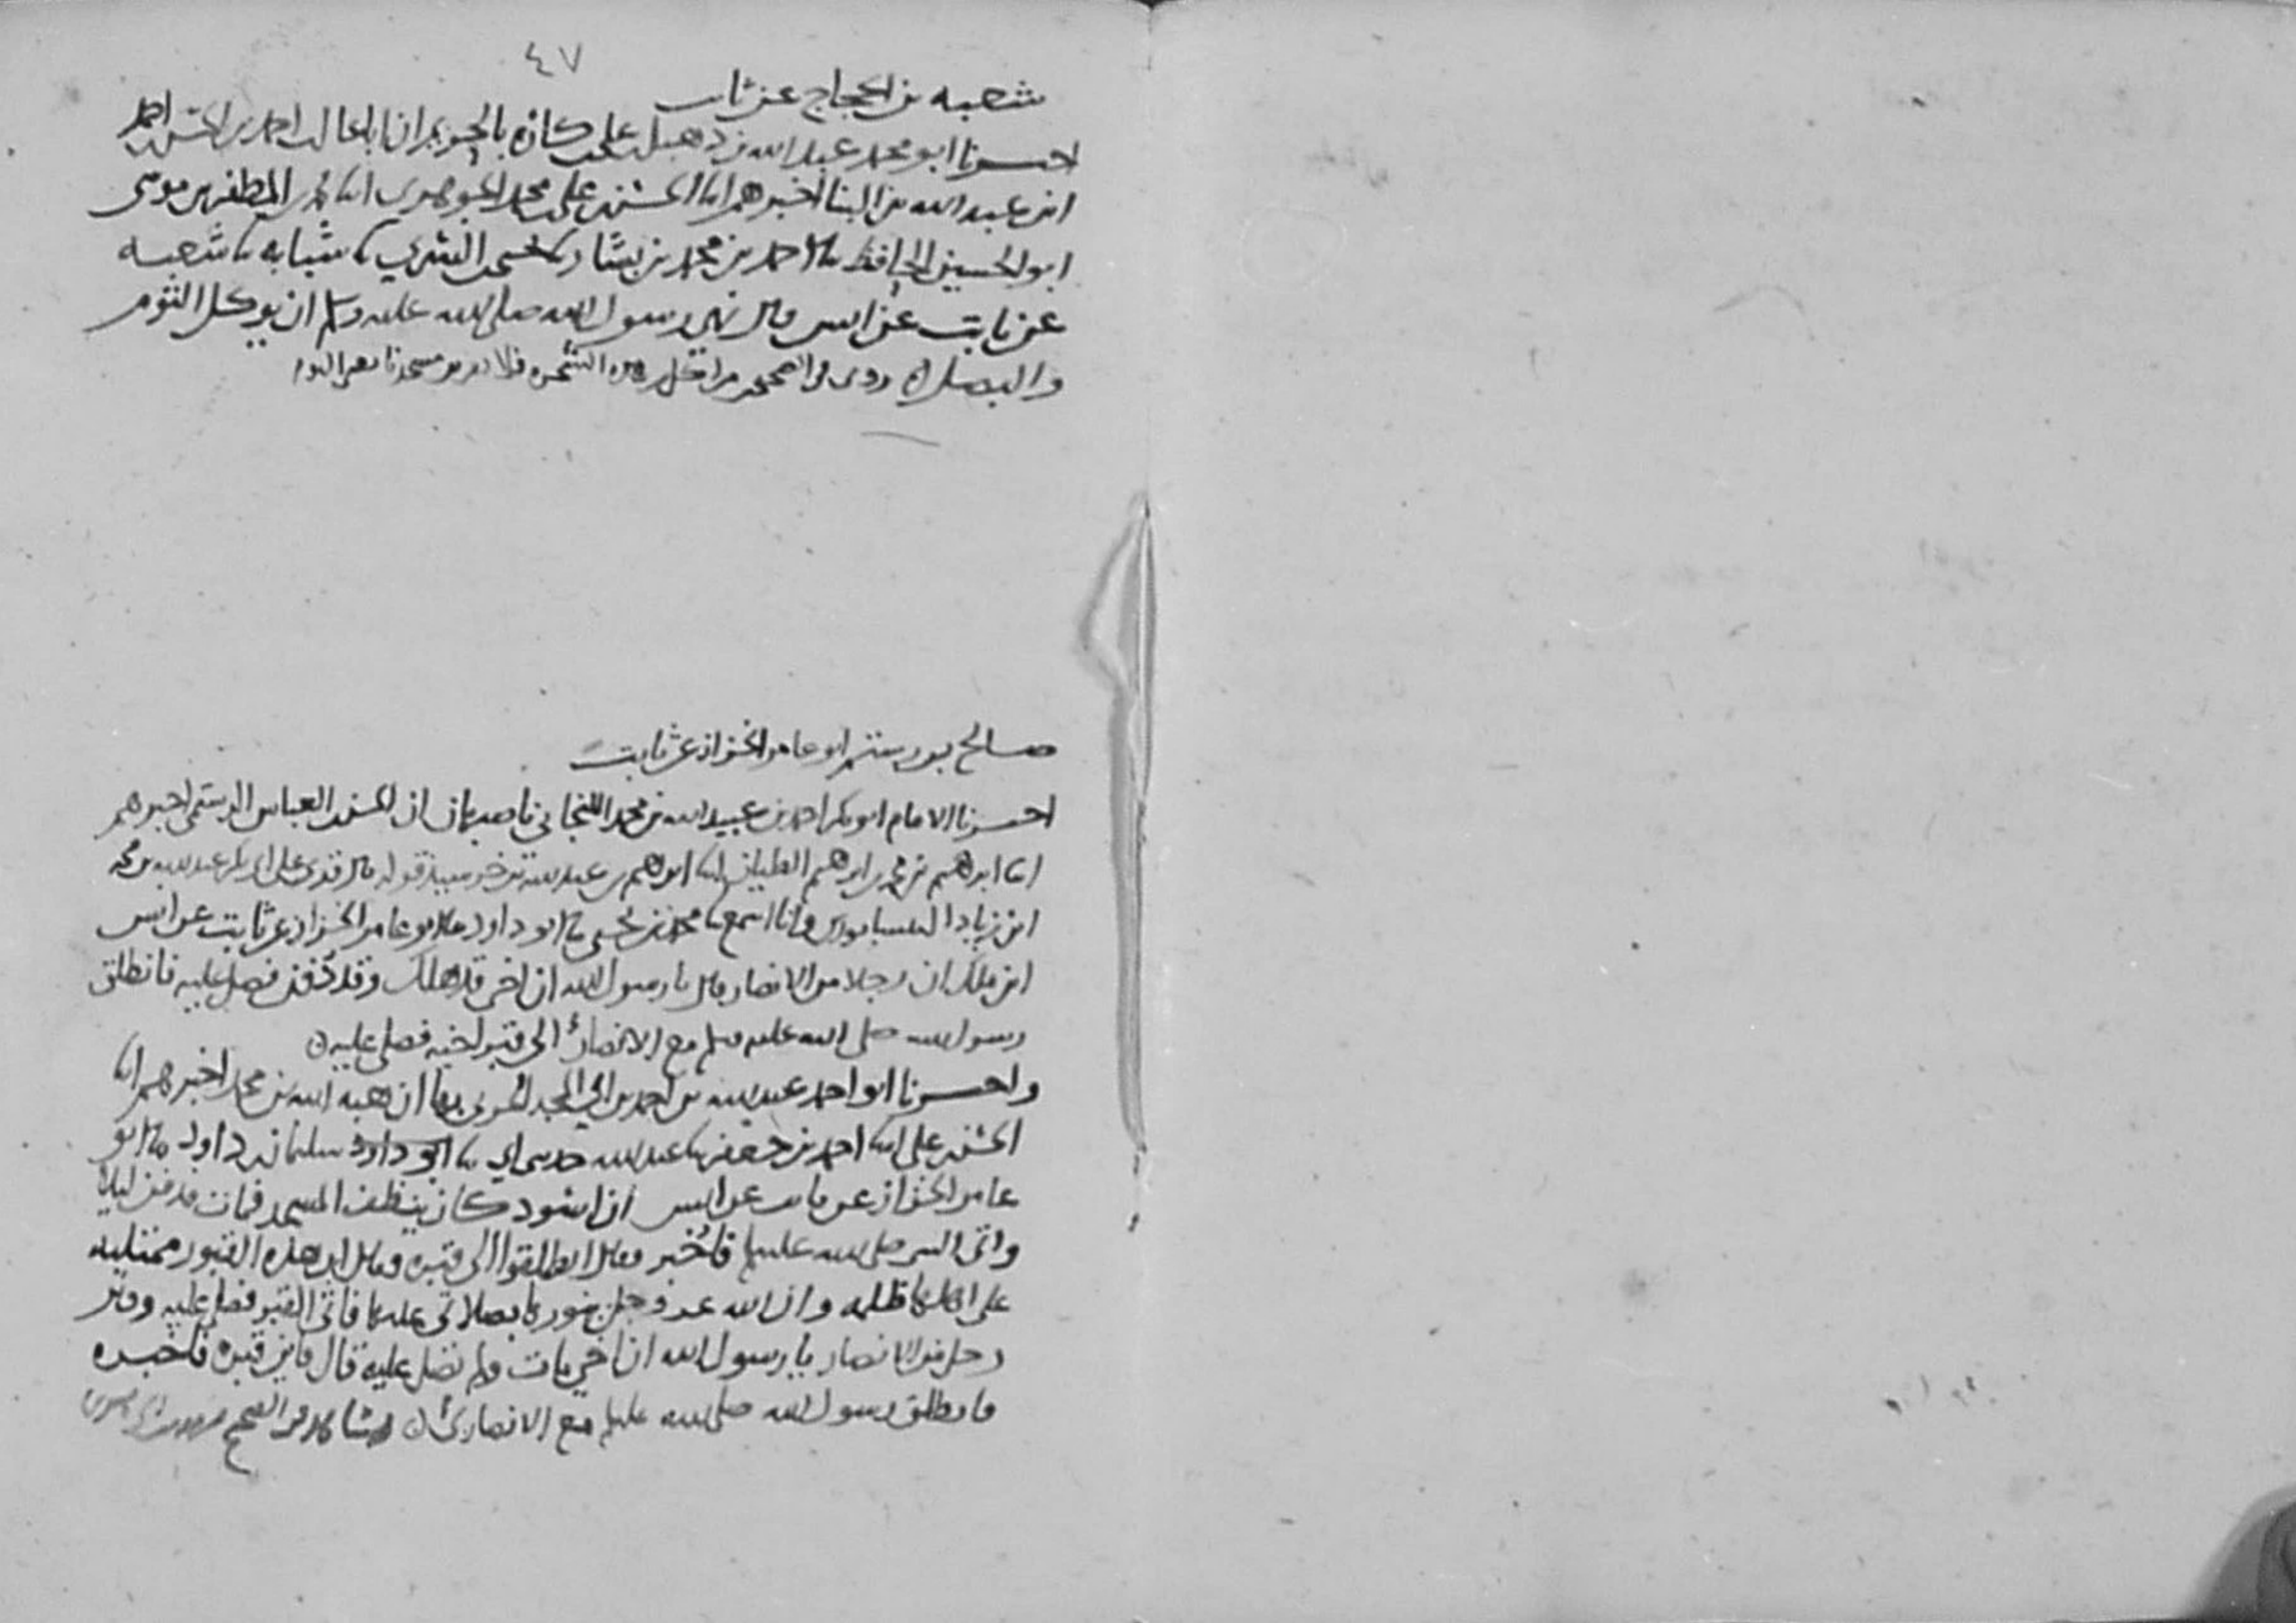 ٤٧
شعبه بن الحجاج عن ثابت
اخبرنا ابو محمد عبد الله بن دهبل بن علي بن كاره بالحريم ان ابا غالب احمد بن الحسن بن احمد
ابن عبد الله بن البنا اخبرهم انا الحسن بن علي بن محمد الجوهري انا محمد بن المظفر بن موسى
ابو الحسين الحافظ نا احمد بن محمد بن بشار شبابه نا شعبه
عن ثابت عن انس قال نهى رسول الله صلى الله عليه وسلم ان يوكل الثوم
والبصل روى في الصحيح من اكل من هذه الشجره فلا مسجدنا يعني الثوم
صالح بن رستم ابو عامر الخزاز عن ثابت
اخبرنا الامام ابو بكر احمد بن عبيد الله بن محمد اللنجاني باصبهان ان الحسن بن العباس الرستمي اخبرهم
انا ابرهيم بن محمد بن ابرهيم الطيان انا ابرهيم بن عبد الله بن خرشيذ قوله قال قرئ على ابي بكر عبد الله بن محمد
ابن زياد النيسابوري وانا اسمع نا محمد بن يحيى نا ابو داود نا ابو عامر الخزاز عن ثابت عن انس
ابن ملك ان رجلا من الانصار قال يا رسول الله ان اخي قد هلك وقد دفن فصل عليه فانطلق
رسول الله صلى الله عليه وسلم مع الانصاري الى قبر اخيه فصلى عليه
واخبرنا ابو احمد عبد الله بن احمد بن ابي المجد الحربي بها ان هبه الله بن محمد اخبرهم انا
الحسن بن علي انا احمد بن جعفر نا عبد الله حدثني ابي نا ابو داود سليمان بن داود نا ابو
عامر الخزاز عن ثابت عن انس ان اسود كان ينظف المسجد فمات فدفن ليلا
واتى النبي صلى الله عليه وسلم فاخبر فقال انطلقوا الى قبره فقال ان هذه القبور ممتلية
على اهلها ظلمه وان الله عز وجل ينورها بصلاتي عليها فاتى القبر فصلى عليه وقال
رجل من الانصار يا رسول الله ان اخي مات ولم تصل عليه قال فاين قبره فاخبره
فانطلق رسول الله صلى الله عليه وسلم مع الانصاري